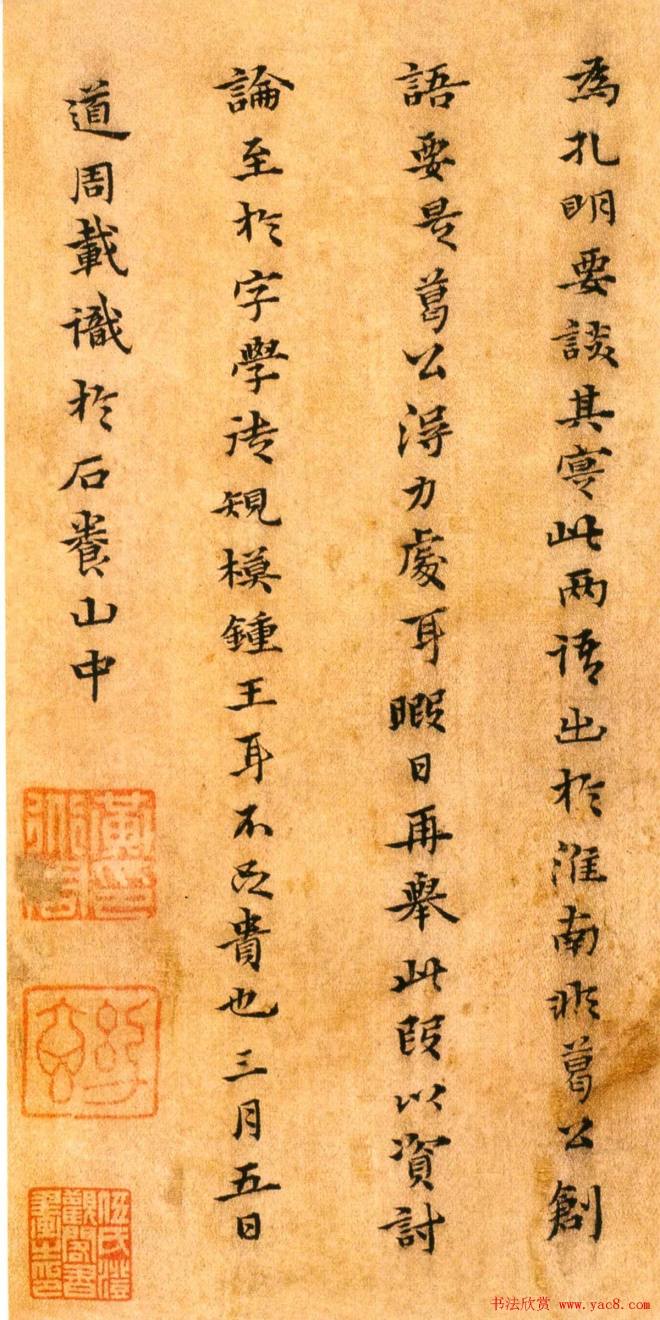 為孔明要談其寔此两語出於淮南非葛公創
語要是葛公得力處耳暇日再舉此段以資討
論至於字學法規模鍾王耳不足貴也三月五日
道周載識於石養山中
伍氏澄觀閣書畫之印
书法欣赏 www.yac8.com